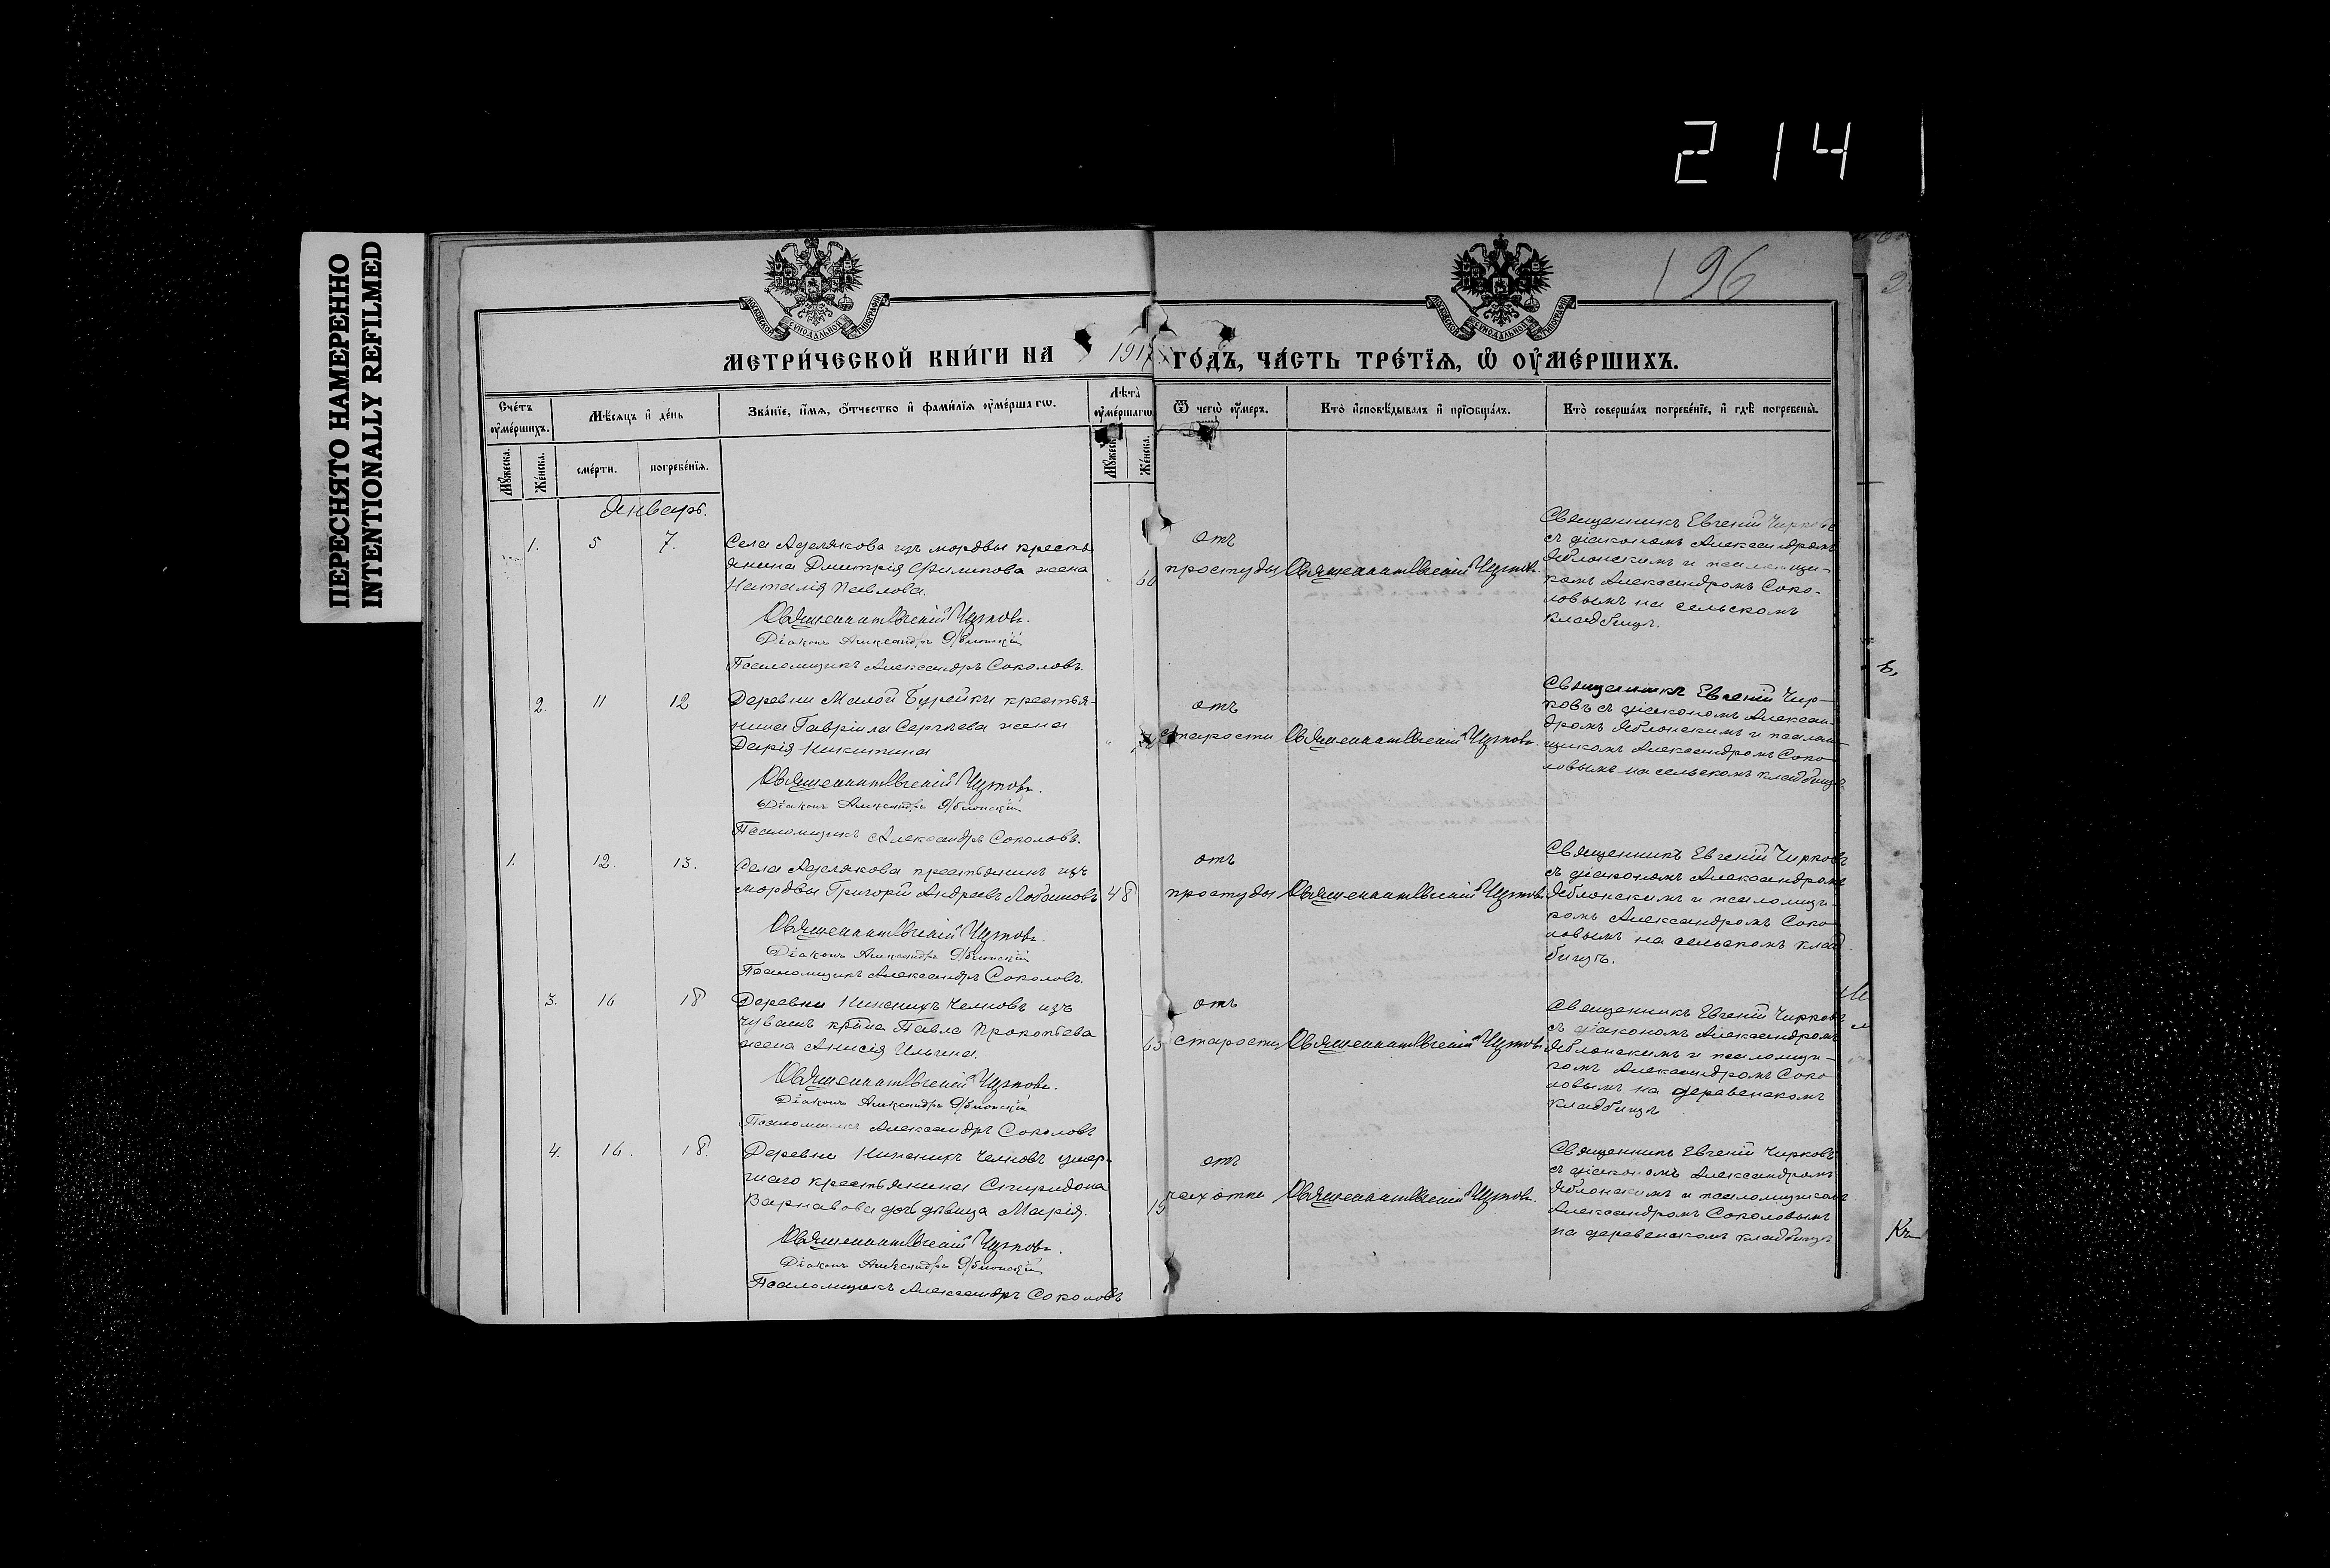 214
ПЕРЕСНЯТО НАМЕРЕННО
INTENTIONALLY REFILMED
196
МОСКОВСКОЙ СѴНОДАЛЬНОЙ ТИПОГРАФІИ
МОСКОВСКОЙ СѴНОДАЛЬНОЙ ТИПОГРАФІИ
МЕТРИ́ЧЕСКОЙ КНИ́ГИ НА 1917 ГО́ДЪ, ЧА́СТЬ ТРЕ́ТЇѦ, Ѡ҆ ОУ҆МЕ́РШИХЪ.
Сче́тъ оу҆ме́ршихъ.
Мѣ́сѧцъ и҆ де́нь
Зва́нїе, и҆́мѧ, ѻ҆́тчество и҆ фами́лїѧ оу҆ме́ршагѡ.
Лѣ́та оу҆ме́ршагѡ.
Ѿ чегѡ̀ оу҆́меръ.
Кто̀ и҆сповѣ́дывалъ и҆ прїѡбща́лъ.
Кто̀ соверша́лъ погребе́нїе, и҆ гдѣ̀ погребены̀.
Мꙋ́жеска.
Же́нска.
сме́рти.
погребе́нїѧ.
Мꙋ́жеска.
Же́нска.
Январь.
1. 5 7.
Села Аделякова изъ мордвы кресть
янина Дмитрія Филипова жена
Наталія Павлова.
Священникъ Евгеній Чирковъ.
Діаконъ Александръ Яблонскій
Псаломщикъ Александръ Соколовъ.
отъ
простуды
Священникъ Евгеній Чирковъ.
Священникъ Евгеній Чирковъ
съ діакономъ Александромъ
Яблонскимъ и псаломщи-
комъ Александромъ Соко-
ловымъ на сельскомъ
кладбищѣ.
2. 11 12
Деревни Малой Бурейки крестья-
нина Гавріила Сергѣева жена
Дарія Никитина
Священникъ Евгеній Чирковъ.
Діаконъ Александръ Яблонскій
Псаломщикъ Александръ Соколовъ.
отъ
старости
Священникъ Евгеній Чирковъ.
Священникъ Евгеній Чир-
ковъ съ діакономъ Алексан-
дромъ Яблонскимъ и псалом-
щикомъ Александромъ Соко
ловымъ на сельскомъ кладбищѣ
1. 12. 13.
Села Аделякова крестьянинъ изъ
мордвы Григорій Андреевъ Лобановъ
48
Священникъ Евгеній Чирковъ.
Діаконъ Александръ Яблонскій
Псаломщикъ Александръ Соколовъ.
отъ
простуды
Священникъ Евгеній Чирковъ
Священникъ Евгеній Чирковъ
съ діакономъ Александромъ
Яблонскимъ и псаломщи-
комъ Александромъ Соко
ловымъ на сельскомъ клад-
бищѣ.
3. 16 18
Деревни Нижнихъ Челновъ изъ
чувашъ кр-на Павла Прокопьева
жена Анисія Ильина.
65
Священникъ Евгеній Чирковъ.
Діаконъ Александръ Яблонскій
Псаломщикъ Александръ Соколовъ
отъ
старости
Священникъ Евгеній Чирковъ
Священникъ Евгеній Чирковъ
съ діакономъ Александромъ
Яблонскимъ и псаломщи-
комъ Александромъ Соко
ловымъ на деревенскомъ
кладбищѣ
4. 16. 18.
Деревни Нижнихъ Челновъ умер-
шаго крестьянина Спиридона
Варнавова дочь дѣвица Марія.
15
Священникъ Евгеній Чирковъ.
Діаконъ Александръ Яблонскій
Псаломщикъ Александръ Соколовъ
отъ
чахотки
Священникъ Евгеній Чирковъ.
Священникъ Евгеній Чирковъ
съ діакономъ Александромъ
Яблонскимъ и псаломщикомъ
Александромъ Соколовымъ
на деревенскомъ кладбищѣ